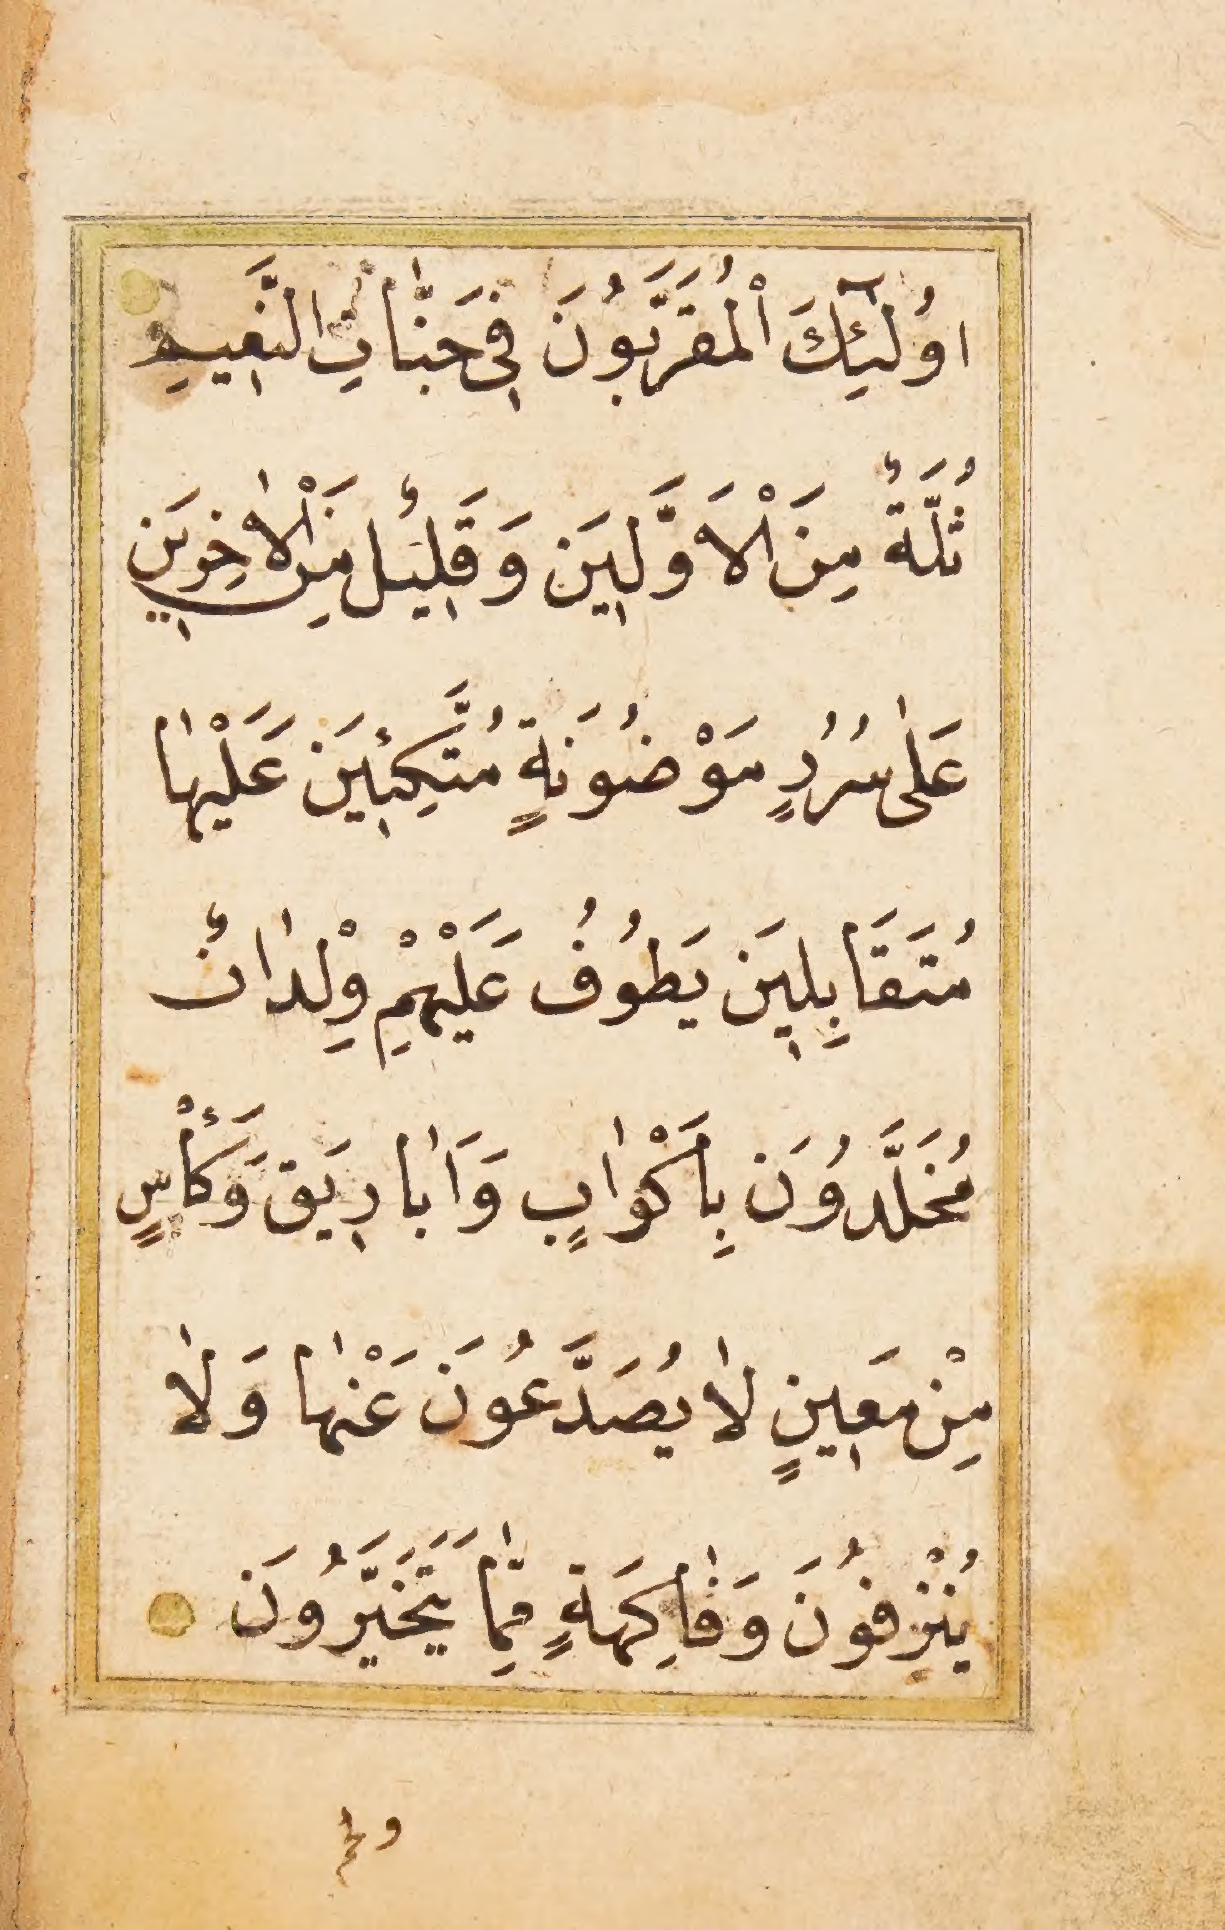 اُولٰٓئِكَ الْمُقَرَّبُونَ فِى جَنَّاتِ النَّعِيمِ
ثُلَّةٌ مِنَ الْاَوَّلِينَ وَقَلِيلٌ مِنَ الْاٰخِرِينَ
عَلٰى سُرُرٍ مَوْضُونَةٍ مُتَّكِئِينَ عَلَيْهٰا
مُتَقَابِلِينَ يَطُوُفُ عَلَيْهِمْ وِلْدٰانٌ
مُخَلَّدُونَ بِاَكْوٰابٍ وَاَبٰارِيقَ وَكَأْسٍ
مِنْ مَعِينٍ لٰا يُصَدَّعُونَ عَنْهٰا وَلٰا
يُنْزِفُونَ وَفٰاكِهَةٍ مِمّٰا يَتَخَيَّرُونَ
ولحم